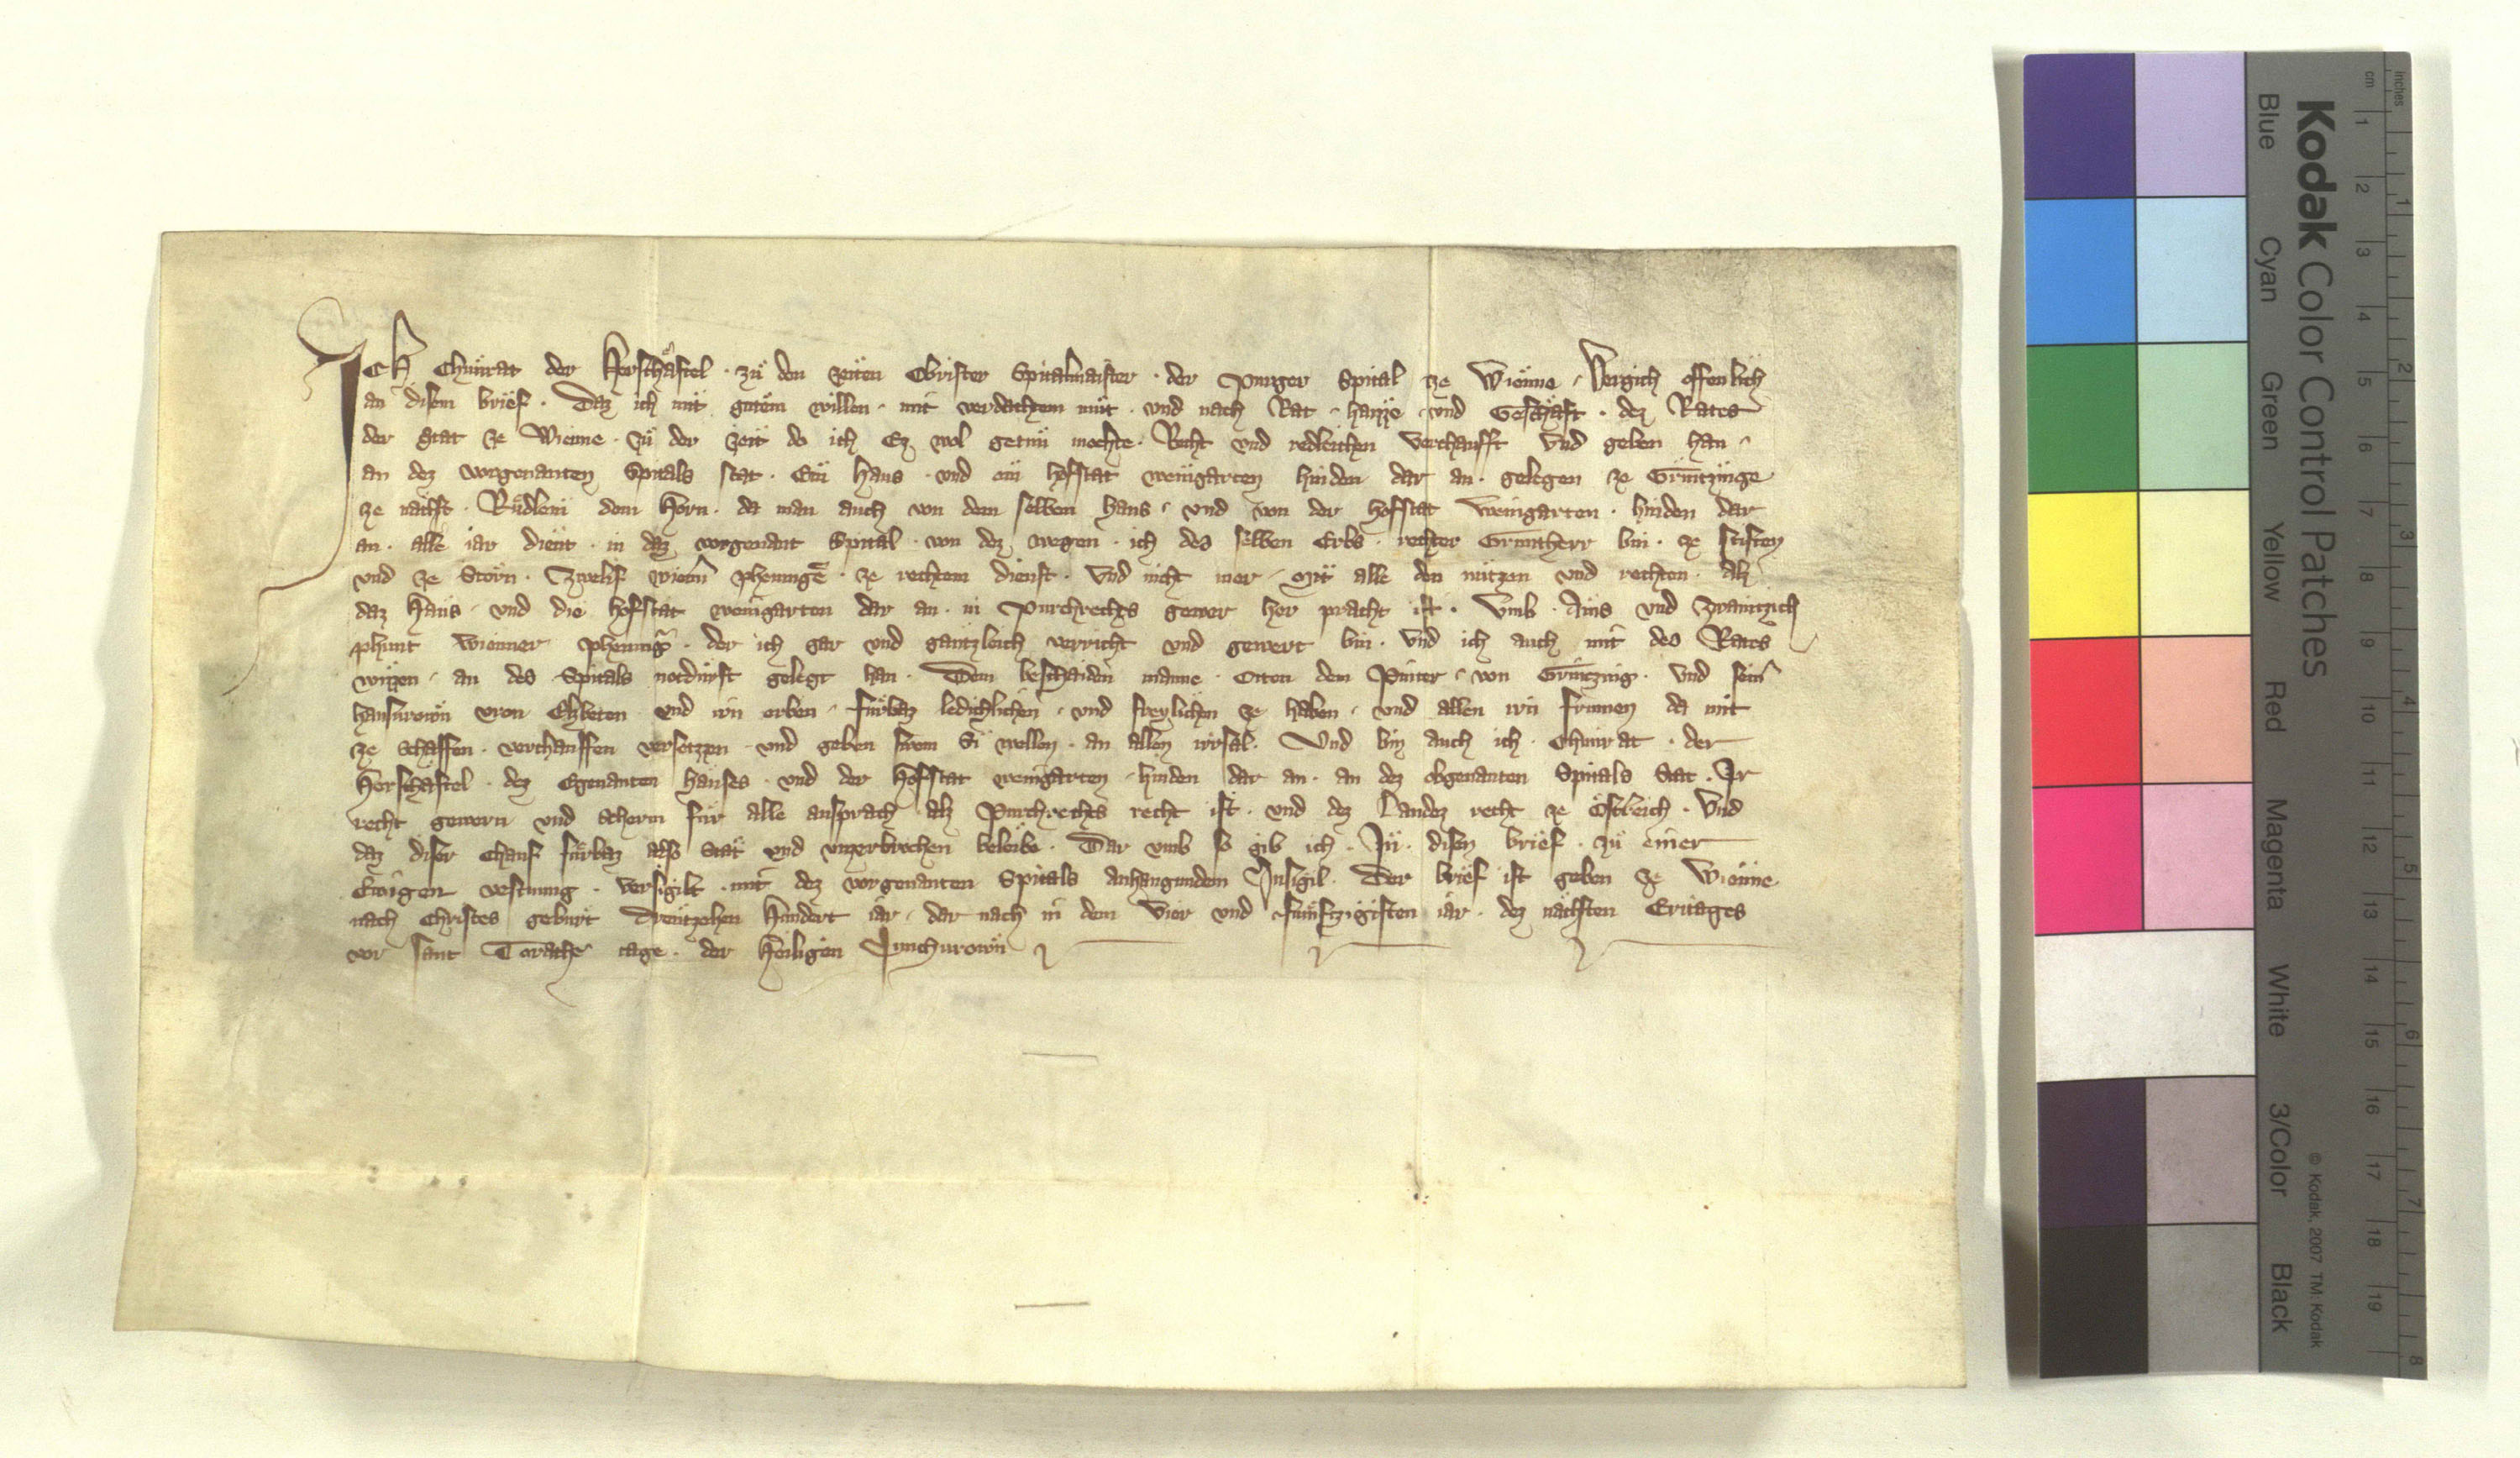 Ich Chunrat der Herschaftel · zů den zeiten Obrister Spitalmaister · der Purger Spital ze Wienne · Vergich offenlich
an disem brief · Daz ich mit gutem willen · mit verdachtem můt · und nach Rat · haizze · und Geschäft · dez Rates
der Stat ze Wienne · zů der zeit do ich Ez wol getun mochte · Recht und redleichen verchaufft und geben han ·
an dez vorgenanten Spitals stat · Ein Haus · und ein hofstat weingarten hinden dar an · gelegen ze Grintzinge
ze nächst · Rüdlein dem Horn · da man auch von dem selben Haus · und von der hofstat weingarten · hinden dar
an · alle iar dient · in daz vorgenant Spital · von dez wegen · ich des selben Erbs · rechter Gruntherr bin · ze stiften
und ze Storn · Zwelif wienn phenninge · ze rechtem dienst · Und nicht mer · Mit alle den nützen und rechten · Alz
daz Haus · und die hofstat weingarten dar an · in Purchrechts gewer her pracht ist · Umb · Ains und zwaintzich
phunt Wienner phenning · der ich gar und gäntzleich verricht und gewert bin · Und ich auch mit des Rates
wizzen · an des Spitals notdurft gelegt han · Dem beschaiden manne · Otten dem Pinter · von Grintzing · und sein
hausvrown vron Elzbeten und irn erben · fürbaz ledichlichen · und freylichen ze haben · und allen irn frumen da mit
ze schaffen · verchauffen versetzzen · und geben swem Si wellen · an allen irrsal · Und bin auch ich · Chunrat · der
Herschaftel · dez Egenanten hauses · und der Hofstat weingarten · hinden dar an · an dez obgenanten Spitals Stat · Ir
recht gewern und scherm für alle ansprach alz Purchrechts recht ist · und dez Landez recht ze Östreich · Und
daz diser chauf fürbaz also stät und unzerbrochen beleibe · Dar umb so gib ich · In · disen brief · zů einer
Ewigen vestnung · versigilt · mit dez vorgenanten Spitals anhangundem Insigil · Der brief ist geben ze Wienne
nach Christes geburt Dreutzehen Hundert iar · dar nach in dem Vier und fumftzigisten iar · dez nächsten Eritages
vor sant Torathe tage · der Heiligen Junchvrown
Kodak Color Control Patches
Blue Cyan Green Yellow Red Magenta White 3/Color Black
© Kodak, 2007 TM: Kodak
inches 1 2 3 4 5 6 7 8
cm 1 2 3 4 5 6 7 8 9 10 11 12 13 14 15 16 17 18 19